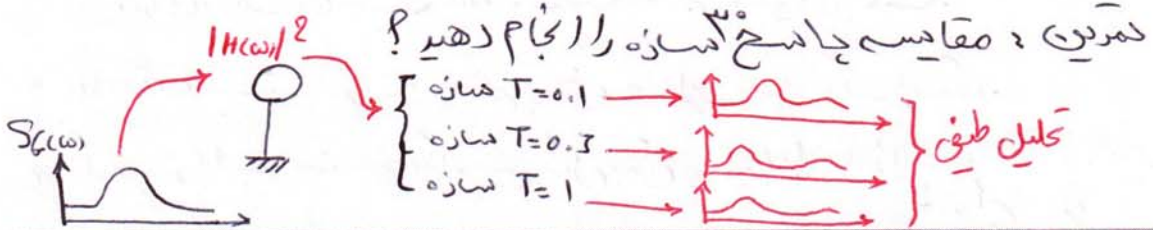 تمرین : مقایسه پاسخ ۳ سازه را انجام دهید ؟
|H(ω)|²
سازه T=0.1
سازه T=0.3
سازه T=1
تحلیل طیفی
S_G(ω)